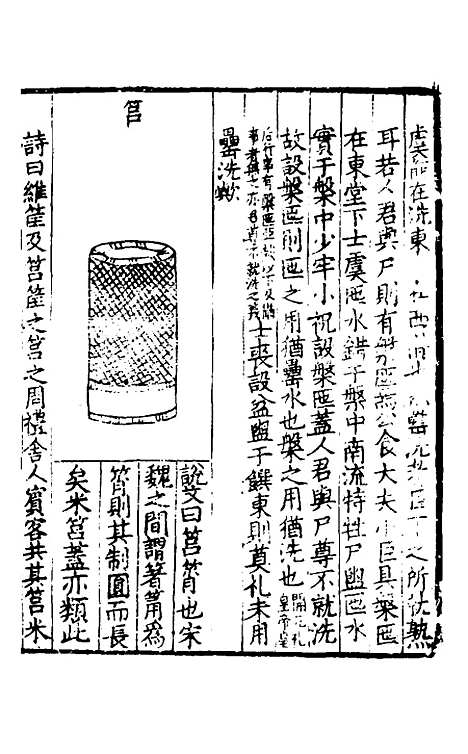 在洗東
耳若人君與尸則有槃匜燕公食大夫小臣具槃匜
在東堂下士虞匜水錯于盤中南流特牲尸盥匜水
實于盤中少牢小祝設盤匜蓋人君與尸尊不就洗
故設盤匜則匜之用猶罍水也盤之用猶洗也開元礼
皇帝皇
后行事有盤匜
事者無之亦君尊不就洗之義
士喪設盆盥于饌東則奠礼未用
罍洗歟
筥
說文曰筥筲也宋
魏之間謂箸筩為
筲則其制圓而長
矣米筥蓋亦類此
詩曰維筐及筥筐之筥之周禮舍人賓客共其筥米